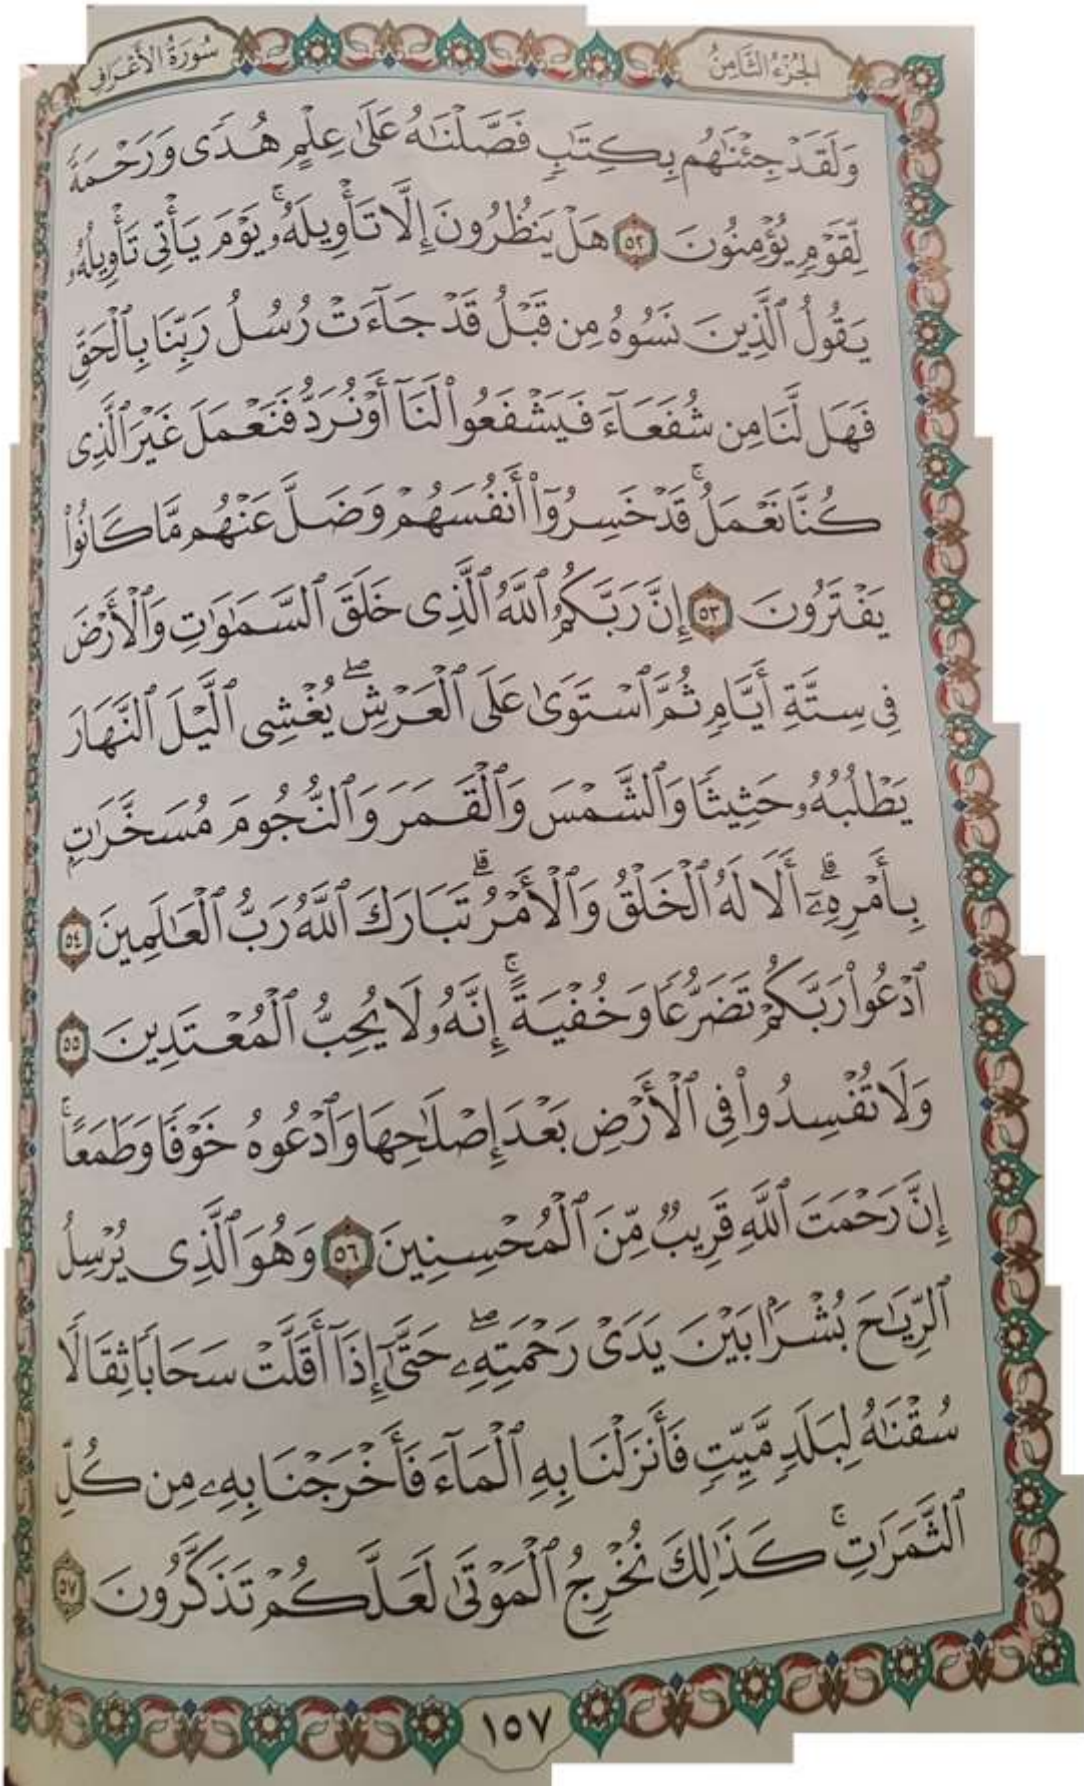 الجُزْءُ الثَّامِنُ
سُورَةُ الأَعْرَافِ
وَلَقَدْ جِئْنَٰهُم بِكِتَٰبٖ فَصَّلْنَٰهُ عَلَىٰ عِلْمٍ هُدٗى وَرَحْمَةٗ
لِّقَوْمٖ يُؤْمِنُونَ ٥٢ هَلْ يَنظُرُونَ إِلَّا تَأْوِيلَهُۥۚ يَوْمَ يَأْتِي تَأْوِيلُهُۥ
يَقُولُ ٱلَّذِينَ نَسُوهُ مِن قَبْلُ قَدْ جَآءَتْ رُسُلُ رَبِّنَا بِٱلْحَقِّ
فَهَل لَّنَا مِن شُفَعَآءَ فَيَشْفَعُوا۟ لَنَآ أَوْ نُرَدُّ فَنَعْمَلَ غَيْرَ ٱلَّذِى
كُنَّا نَعْمَلُۚ قَدْ خَسِرُوٓا۟ أَنفُسَهُمْ وَضَلَّ عَنْهُم مَّا كَانُوا۟
يَفْتَرُونَ ٥٣ إِنَّ رَبَّكُمُ ٱللَّهُ ٱلَّذِى خَلَقَ ٱلسَّمَٰوَٰتِ وَٱلْأَرْضَ
فِى سِتَّةِ أَيَّامٖ ثُمَّ ٱسْتَوَىٰ عَلَى ٱلْعَرْشِۖ يُغْشِى ٱلَّيْلَ ٱلنَّهَارَ
يَطْلُبُهُۥ حَثِيثٗا وَٱلشَّمْسَ وَٱلْقَمَرَ وَٱلنُّجُومَ مُسَخَّرَٰتِۭ
بِأَمْرِهِۦٓۗ أَلَا لَهُ ٱلْخَلْقُ وَٱلْأَمْرُۗ تَبَارَكَ ٱللَّهُ رَبُّ ٱلْعَٰلَمِينَ ٥٤
ٱدْعُوا۟ رَبَّكُمْ تَضَرُّعٗا وَخُفْيَةًۚ إِنَّهُۥ لَا يُحِبُّ ٱلْمُعْتَدِينَ ٥٥
وَلَا تُفْسِدُوا۟ فِى ٱلْأَرْضِ بَعْدَ إِصْلَٰحِهَا وَٱدْعُوهُ خَوْفٗا وَطَمَعًاۚ
إِنَّ رَحْمَتَ ٱللَّهِ قَرِيبٞ مِّنَ ٱلْمُحْسِنِينَ ٥٦ وَهُوَ ٱلَّذِى يُرْسِلُ
ٱلرِّيَٰحَ بُشْرَۢا بَيْنَ يَدَىْ رَحْمَتِهِۦۖ حَتَّىٰٓ إِذَآ أَقَلَّتْ سَحَابٗا ثِقَالٗا
سُقْنَٰهُ لِبَلَدٖ مَّيِّتٖ فَأَنزَلْنَا بِهِ ٱلْمَآءَ فَأَخْرَجْنَا بِهِۦ مِن كُلِّ
ٱلثَّمَرَٰتِۚ كَذَٰلِكَ نُخْرِجُ ٱلْمَوْتَىٰ لَعَلَّكُمْ تَذَكَّرُونَ ٥٧
١٥٧